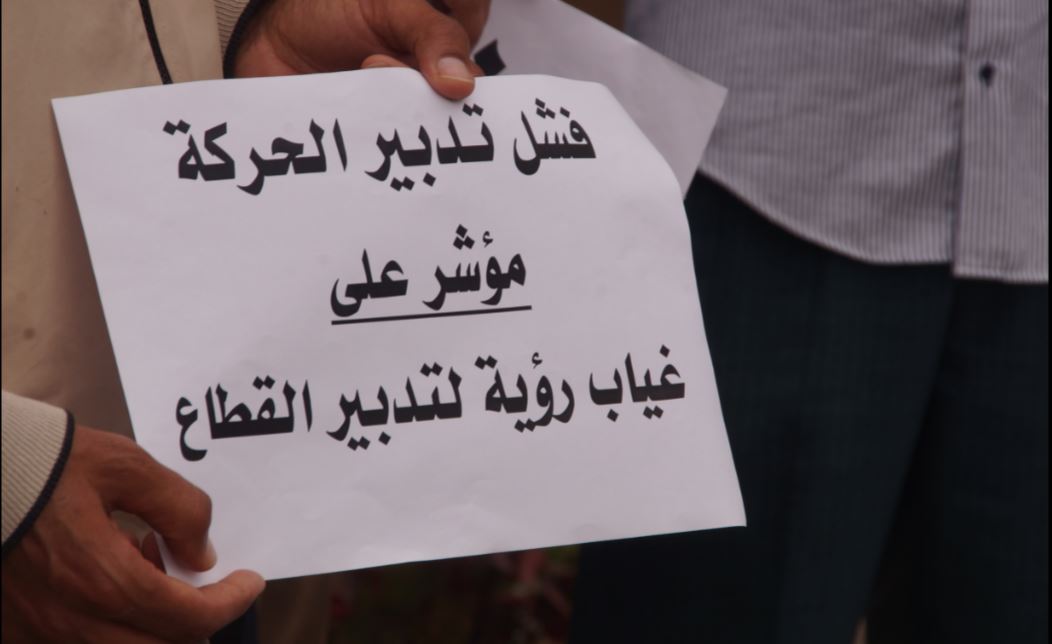 فشل تدبير الحركة
مؤشر على
غياب رؤية لتدبير القطاع